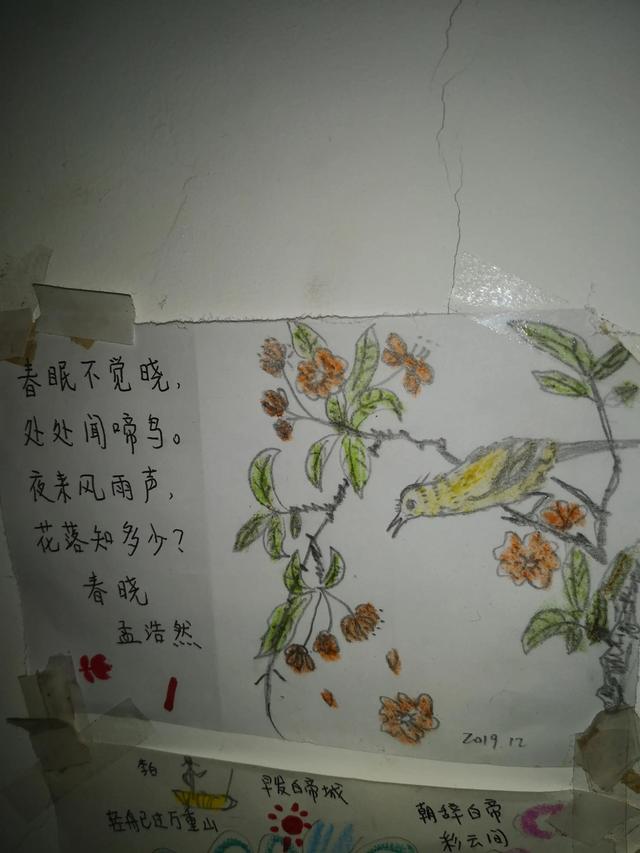 春眠不觉晓,
处处闻啼鸟。
夜来风雨声,
花落知多少?
春晓
孟浩然
2019.12
李白
早发白帝城
朝辞白帝
彩云间
轻舟已过万重山